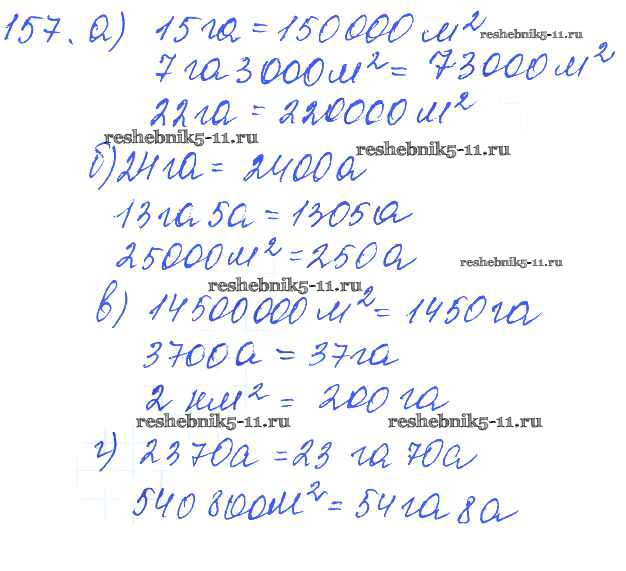 157. а) 15 га = 150000 м² reshebnik5-11.ru
7 га 3000 м² = 73000 м²
22 га = 220000 м²
reshebnik5-11.ru reshebnik5-11.ru
б) 24 га = 2400 а
13 га 5а = 1305 а
25000 м² = 250 а reshebnik5-11.ru
reshebnik5-11.ru
в) 14500000 м² = 1450 га
3700 а = 37 га
2 км² = 200 га
reshebnik5-11.ru reshebnik5-11.ru
г) 2370 а = 23 га 70 а
540 800 м² = 54 га 8 а